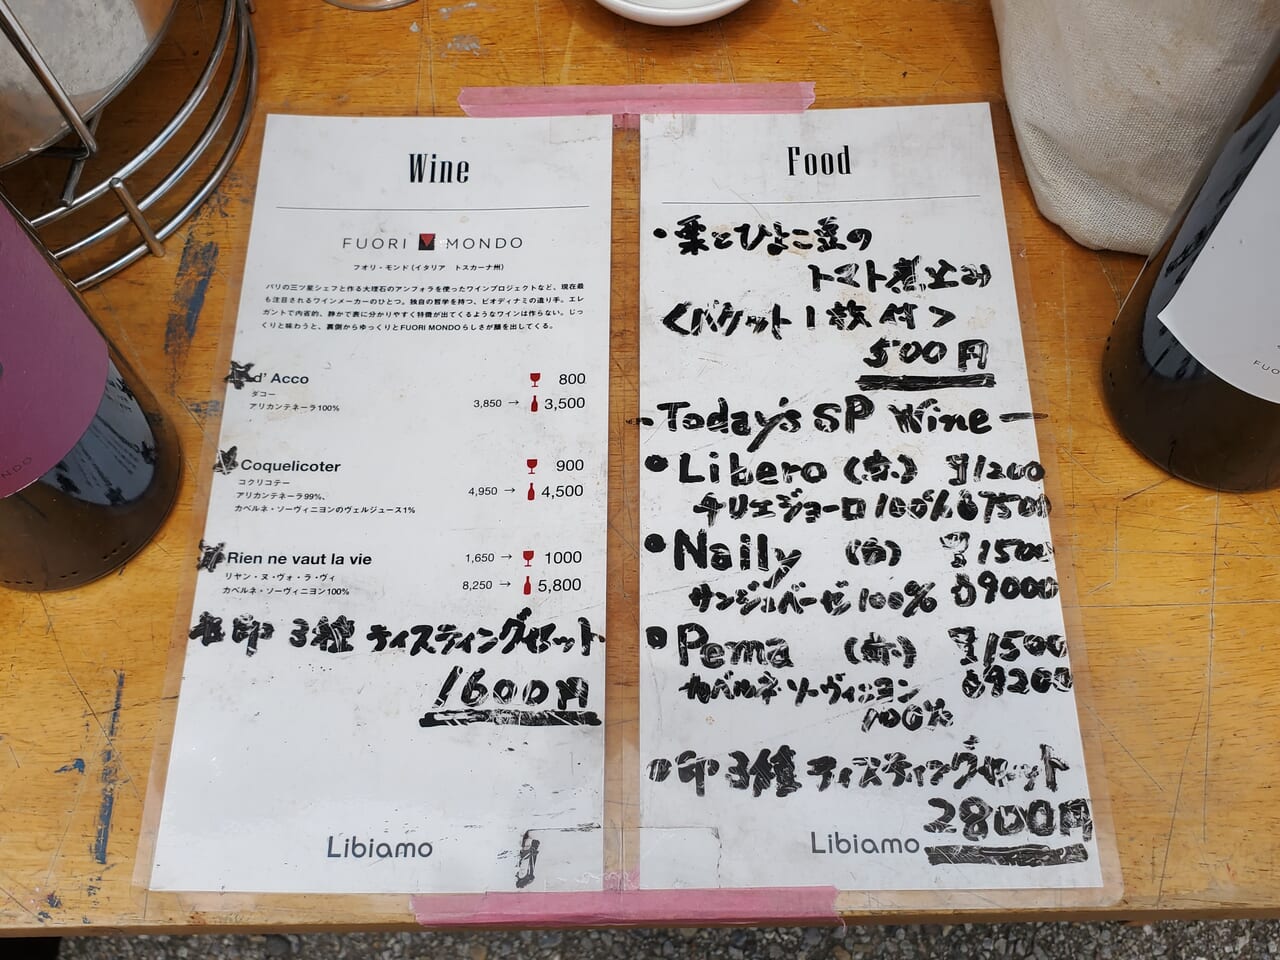 Wine
FUORI MONDO
フオリ・モンド(イタリア トスカーナ州)
パリの三ツ星シェフと作る大理石のアンフォラを使ったワインプロジェクトなど、現在最
も注目されるワインメーカーのひとつ。独自の哲学を持つ、ビオディナミの造り手。エレ
ガントで内省的、静かで表に分かりやすく特徴が出てくるようなワインは作らない。じっ
くりと味わうと、裏側からゆっくりとFUORI MONDOらしさが顔を出してくる。
d' Acco 800
ダコー
アリカンテネーラ100% 3,850 → 3,500
Coquelicoter 900
コクリコテー
アリカンテネーラ99%、 4,950 → 4,500
カベルネ・ソーヴィニヨンのヴェルジュース1%
Rien ne vaut la vie 1,650 → 1000
リヤン・ヌ・ヴォ・ラ・ヴィ
カベルネ・ソーヴィニヨン100% 8,250 → 5,800
印 3種 ティスティングセット
1600円
Libiamo
Food
・栗とひよこ豆の
トマト煮込み
<バケット1枚付>
500円
-Today's SP Wine-
●Libero (赤) 1200
チリエジョーロ100% 7500
●Naily (白) 1500
サンジョベーゼ100% 9000
●Pema (赤) 1500
カベルネソーヴィニヨン 9200
100%
印 3種 ティスティングセット
2800円
Libiamo